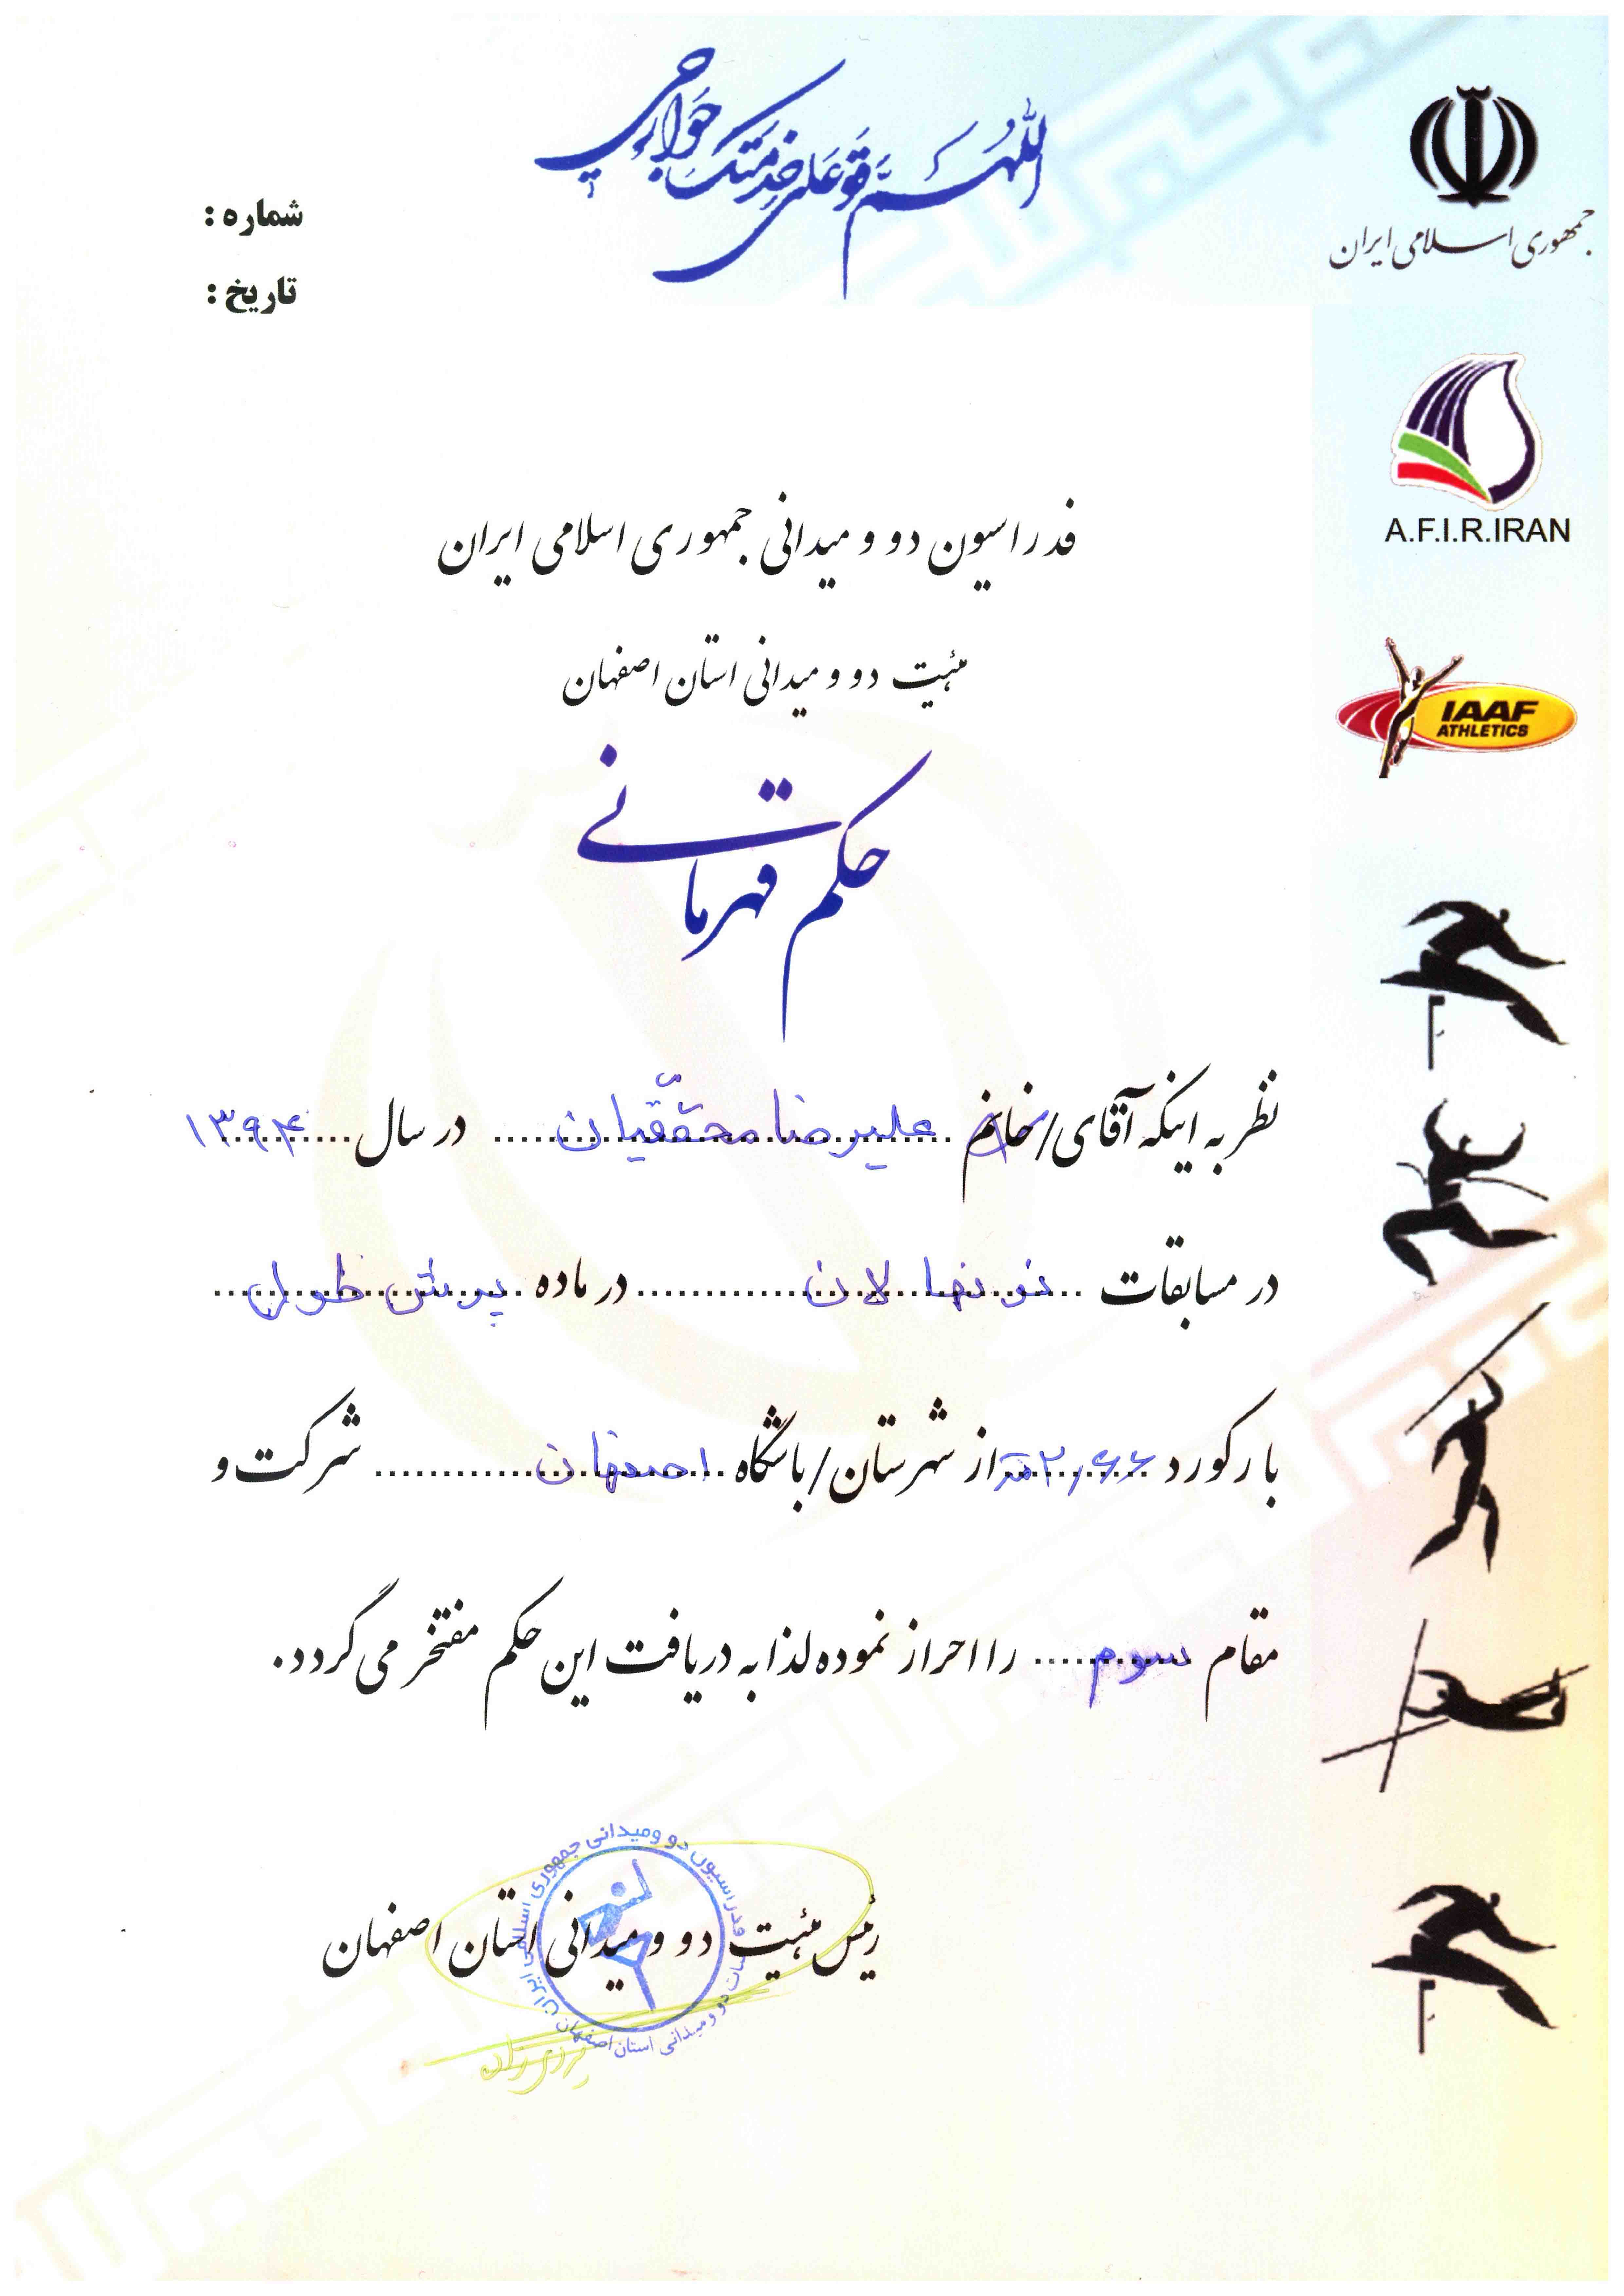 اللهم قو علی خدمتک جوارحی
جمهوری اسلامی ایران
شماره :
تاریخ :
A.F.I.R.IRAN
فدراسیون دو و میدانی جمهوری اسلامی ایران
هیئت دو و میدانی استان اصفهان
IAAF
ATHLETICS
حکم قهرمانی
نظر به اینکه آقای/خانم علیرضا محققیان در سال ۱۳۹۴
در مسابقات نونهالان در ماده پرش طول
با رکورد ۲٫۶۶ متر از شهرستان/باشگاه اصفهان شرکت و
مقام سوم را احراز نموده لذا به دریافت این حکم مفتخر می گردد.
رئیس هیئت دو و میدانی استان اصفهان
فدراسیون دو ومیدانی جمهوری اسلامی ایران
هیئت دو و میدانی استان اصفهان